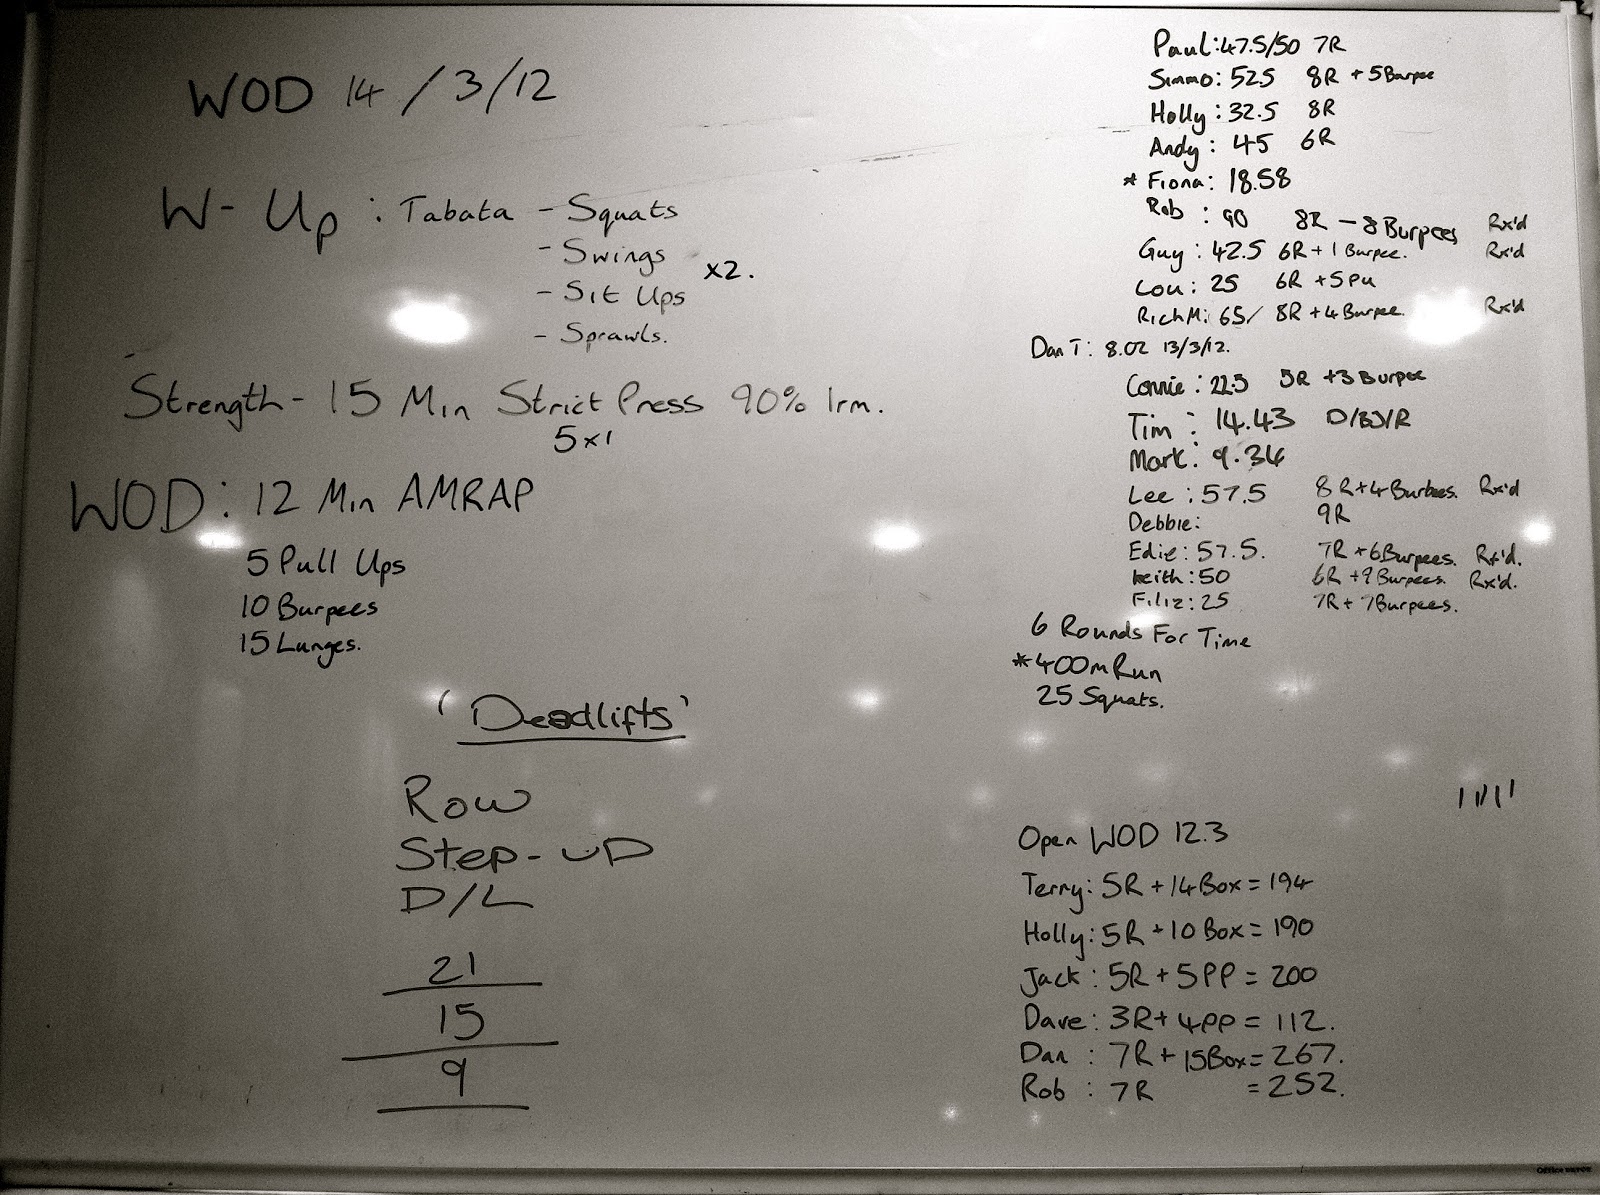 WOD 14/3/12
W-Up : Tabata - Squats
- Swings
x2.
- Sit Ups
- Sprawls.
Strength - 15 Min Strict Press 90% 1rm.
5x1
WOD: 12 Min AMRAP
5 Pull Ups
10 Burpees
15 Lunges.
'Deadlifts'
Row
Step-up
D/L
21
15
9
Paul: 47.5/50 7R
Simmo: 52.5 8R + 5 Burpee
Holly: 32.5 8R
Andy: 45 6R
* Fiona: 18.58
Rob : 90 8R - 8 Burpees Rx'd
Guy: 42.5 6R + 1 Burpee. Rx'd
Lou: 25 6R + 5 Pu
Rich M: 65/ 8R + 4 Burpee. Rx'd
Dan T: 8.02 13/3/12.
Connie: 22.5 5R + 3 Burpee
Tim : 14.43 D/BJ/R
Mark: 9.36
Lee : 57.5 8R + 4 Burbees. Rx'd
Debbie: 9R
Edie: 57.5. 7R + 6 Burpees. Rx'd.
Keith: 50 6R + 9 Burpees. Rx'd.
Filiz: 25 7R + 7 Burpees.
6 Rounds For Time
* 400m Run
25 Squats.
Open WOD 12.3
Terry: 5R + 14 Box = 194
Holly: 5R + 10 Box = 190
Jack: 5R + 5 PP = 200
Dave: 3R + 4 PP = 112.
Dan : 7R + 15 Box = 267.
Rob : 7R = 252.
Office DEPOT